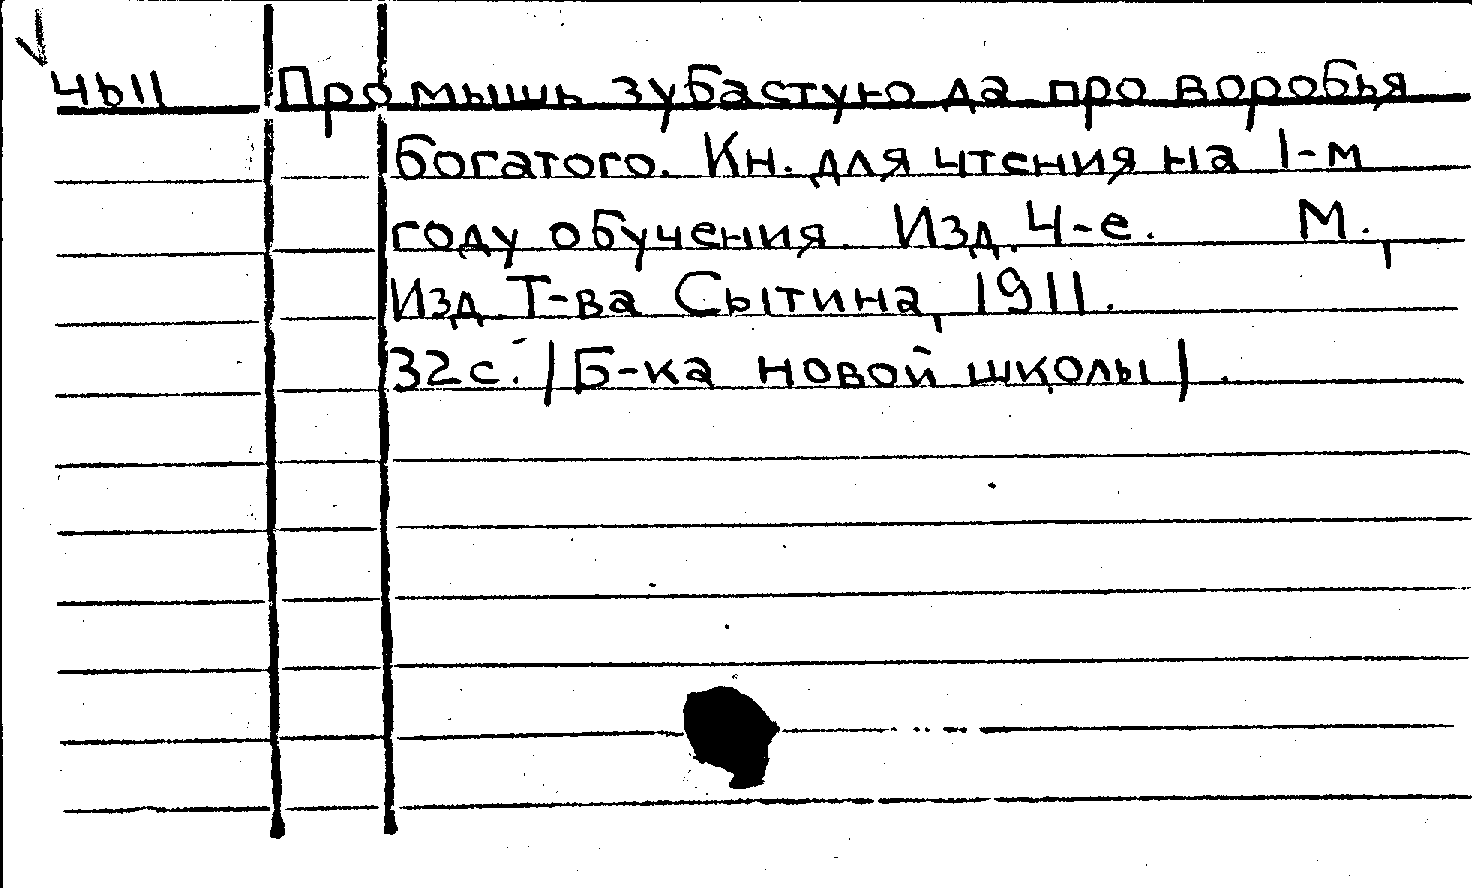 4b11 Про мышь зубастую да про воробья
богатого. Кн. для чтения на 1-м
году обучения. Изд. 4-е. М.,
Изд. Т-ва Сытина, 1911.
32 с. /Б-ка новой школы/.